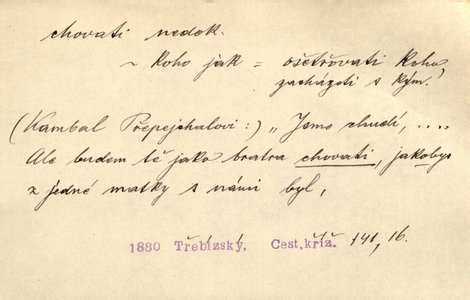 chovati nedok.
~ koho jak = ošetřovati koho
zacházeti s kým!
(Kambal Přepejchalovi:) „Jsme chudí, ....
Ale budem tě jako bratra chovati, jakobys
z jedné matky s námi byl,
1880 Třebízský, Cest. kříž. 141, 16.